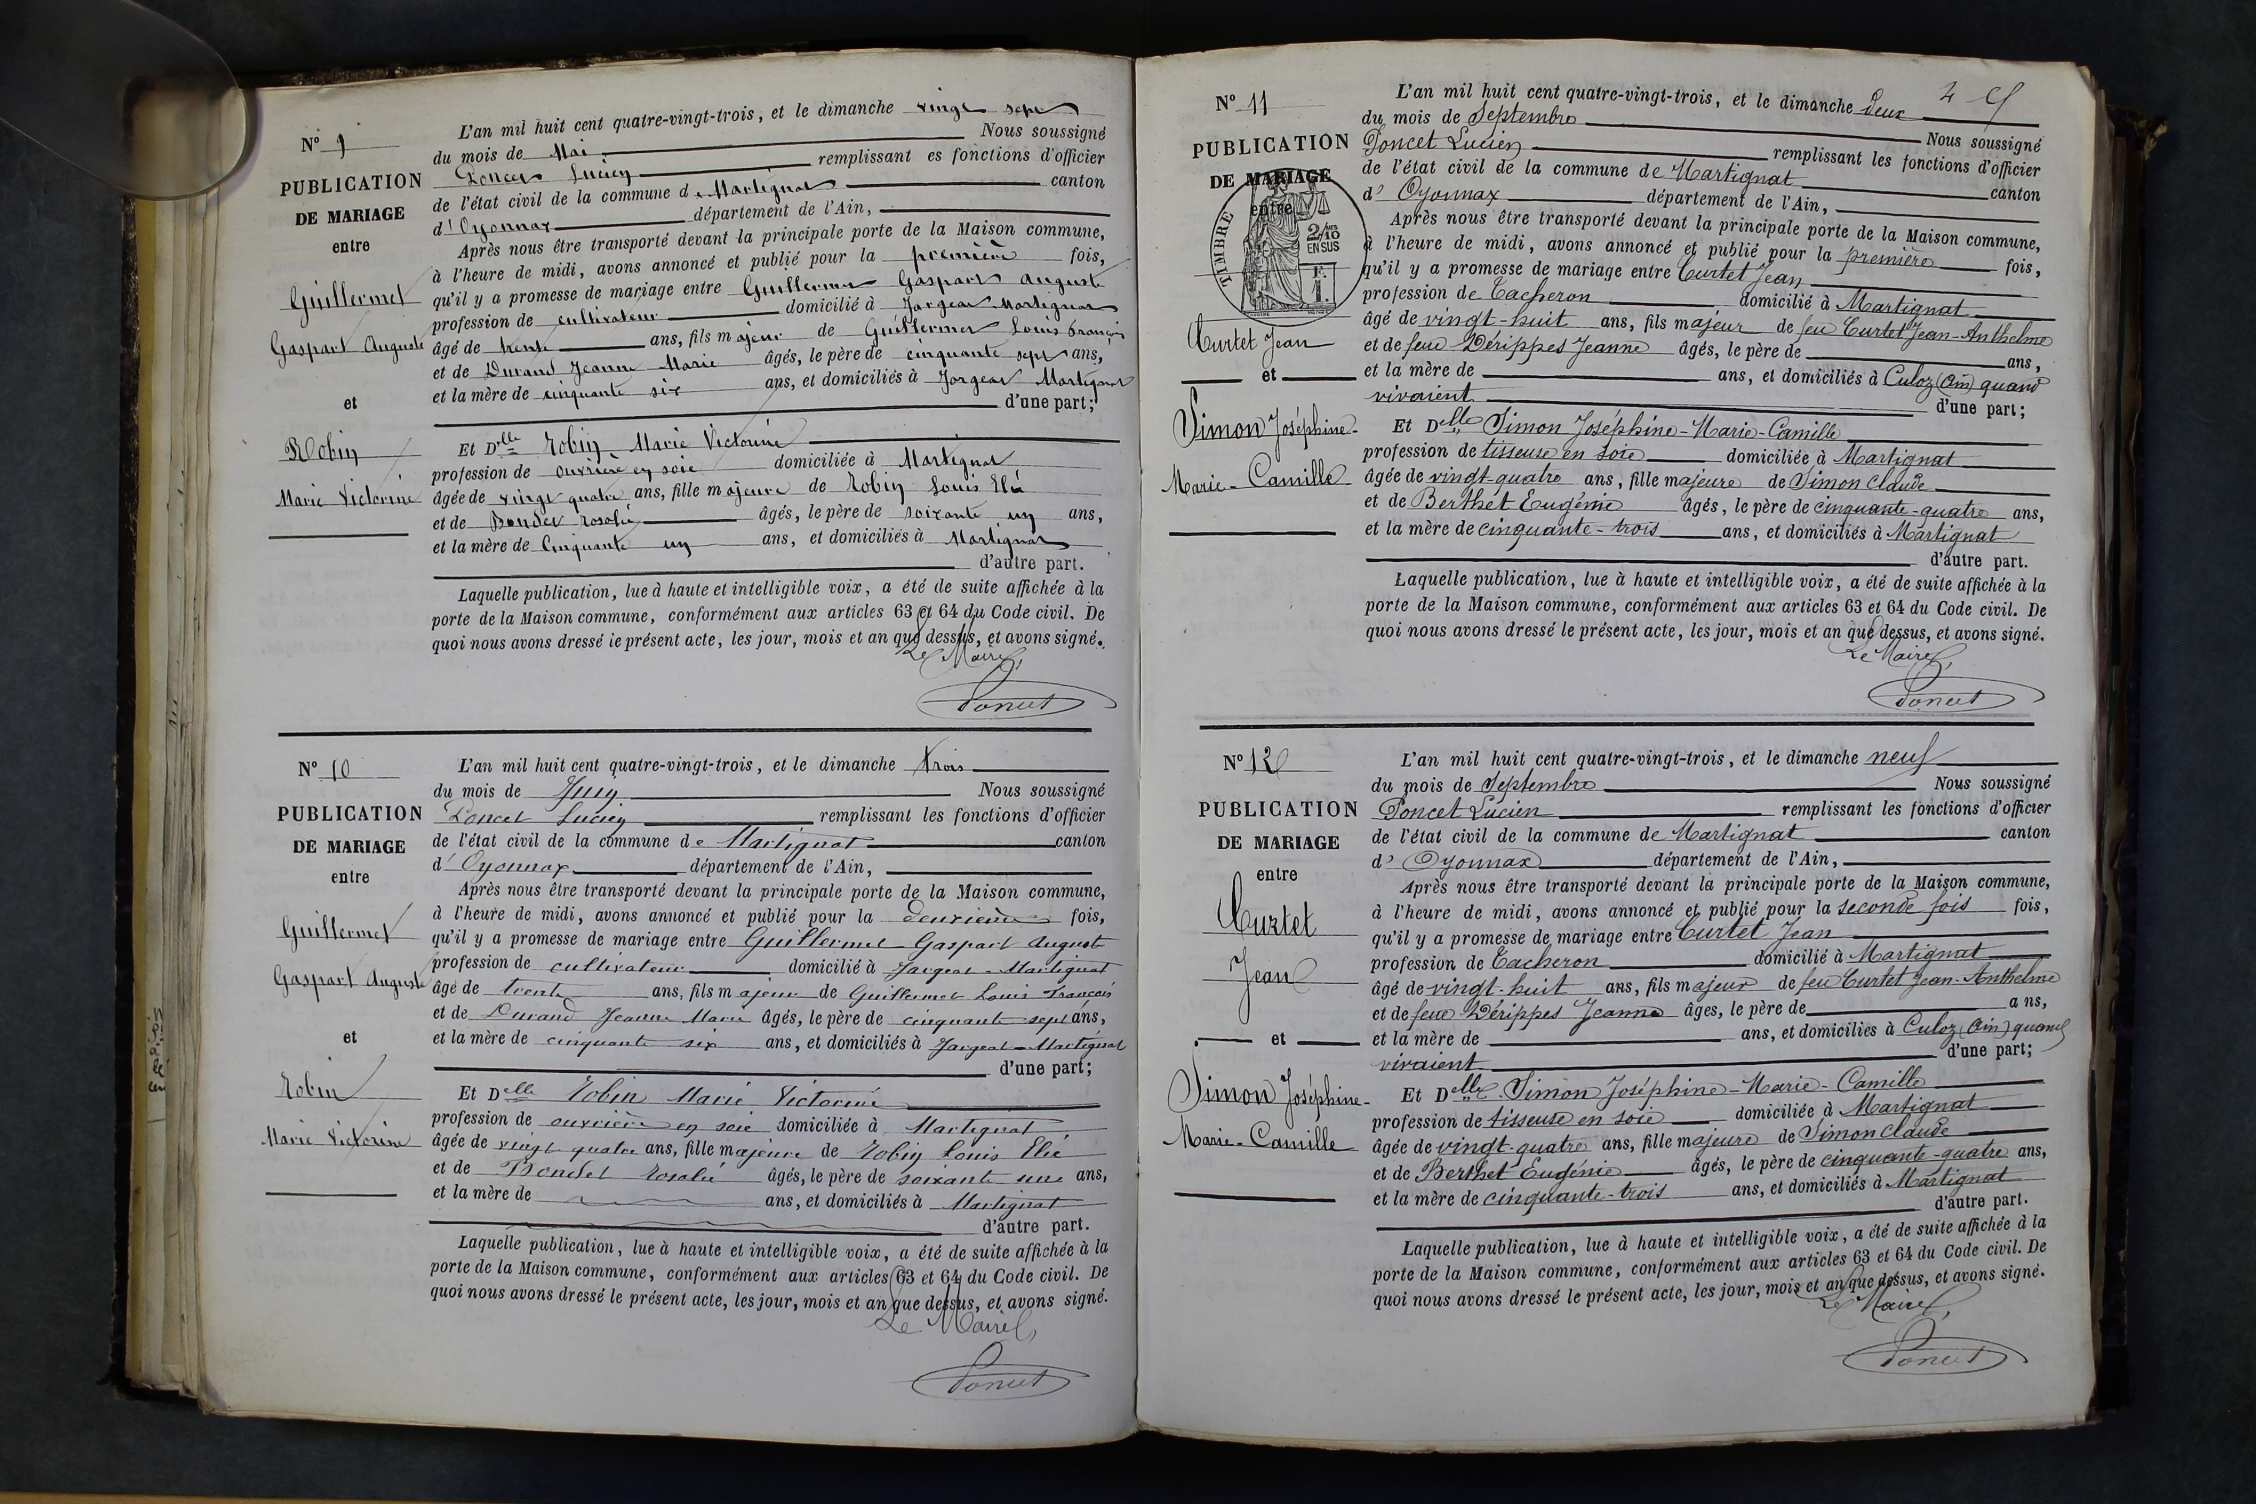 N° 9
PUBLICATION
DE MARIAGE
entre
Guillermet
Gaspart Auguste
et
Robin
Marie Victorine
L'an mil huit cent quatre-vingt-trois, et le dimanche vingt sept
du mois de Mai Nous soussigné
Poncet Lucien remplissant es fonctions d'officier
de l'état civil de la commune de Martignat canton
d'Oyonnax département de l'Ain,
Après nous être transporté devant la principale porte de la Maison commune,
à l'heure de midi, avons annoncé et publié pour la première fois,
qu'il y a promesse de mariage entre Guillermet Gaspart Auguste
profession de cultivateur domicilié à Jargeat Martignat
âgé de trente ans, fils majeur de Guillermet Louis François
et de Durand Jeanne Marie âgés, le père de cinquante sept ans,
et la mère de cinquante six ans, et domiciliés à Jargeat Martignat
d'une part;
Et Delle Robin Marie Victorine
profession de ouvrière en soie domiciliée à Martignat
âgée de vingt quatre ans, fille majeure de Robin Louis Elié
et de Bondet rosalie âgés, le père de soixante un ans,
et la mère de Cinquante un ans, et domiciliés à Martignat
d'autre part.
Laquelle publication, lue à haute et intelligible voix, a été de suite affichée à la
porte de la Maison commune, conformément aux articles 63 et 64 du Code civil. De
quoi nous avons dressé le présent acte, les jour, mois et an que dessus, et avons signé.
Le Maire,
Poncet
N° 10
PUBLICATION
DE MARIAGE
entre
Guillermet
Gaspart Auguste
et
Robin
Marie Victorine
L'an mil huit cent quatre-vingt-trois, et le dimanche trois
du mois de Juin Nous soussigné
Poncet Lucien remplissant les fonctions d'officier
de l'état civil de la commune de Martignat canton
d'Oyonnax département de l'Ain,
Après nous être transporté devant la principale porte de la Maison commune,
à l'heure de midi, avons annoncé et publié pour la deuxième fois,
qu'il y a promesse de mariage entre Guillermet Gaspart Auguste
profession de cultivateur domicilié à Jargeat - Martignat
âgé de trente ans, fils majeur de Guillermet Louis François
et de Durand Jeanne Marie âgés, le père de cinquante sept ans,
et la mère de cinquante six ans, et domiciliés à Jargeat - Martignat
d'une part;
Et Delle Robin Marie Victorine
profession de ouvrière en soie domiciliée à Martignat
âgée de vingt quatre ans, fille majeure de Robin Louis Elié
et de Bondet rosalie âgés, le père de soixante une ans,
et la mère de ans, et domiciliés à Martignat
d'autre part.
Laquelle publication, lue à haute et intelligible voix, a été de suite affichée à la
porte de la Maison commune, conformément aux articles 63 et 64 du Code civil. De
quoi nous avons dressé le présent acte, les jour, mois et an que dessus, et avons signé.
Le Maire,
Poncet
N° 11
PUBLICATION
DE MARIAGE
entre
TIMBRE
2/10
EN SUS
Curtet Jean
et
Simon Joséphine-
Marie-Camille
L'an mil huit cent quatre-vingt-trois, et le dimanche deux
du mois de Septembre Nous soussigné
Poncet Lucien remplissant les fonctions d'officier
de l'état civil de la commune de Martignat canton
d'Oyonnax département de l'Ain,
Après nous être transporté devant la principale porte de la Maison commune,
à l'heure de midi, avons annoncé et publié pour la première fois,
qu'il y a promesse de mariage entre Curtet Jean
profession de Tacheron domicilié à Martignat
âgé de vingt-huit ans, fils majeur de feu Curtet Jean-Anthelme
et de feue Dérippes Jeanne âgés, le père de ans,
et la mère de ans, et domiciliés à Culoz (Ain) quand
vivaient d'une part;
Et Delle Simon Joséphine-Marie-Camille
profession de tisseuse en soie domiciliée à Martignat
âgée de vingt-quatre ans, fille majeure de Simon Claude
et de Berthet Eugénie âgés, le père de cinquante-quatre ans,
et la mère de cinquante-trois ans, et domiciliés à Martignat
d'autre part.
Laquelle publication, lue à haute et intelligible voix, a été de suite affichée à la
porte de la Maison commune, conformément aux articles 63 et 64 du Code civil. De
quoi nous avons dressé le présent acte, les jour, mois et an que dessus, et avons signé.
Le Maire,
Poncet
N° 12
PUBLICATION
DE MARIAGE
entre
Curtet
Jean
et
Simon Joséphine-
Marie-Camille
L'an mil huit cent quatre-vingt-trois, et le dimanche neuf
du mois de Septembre Nous soussigné
Poncet Lucien remplissant les fonctions d'officier
de l'état civil de la commune de Martignat canton
d'Oyonnax département de l'Ain,
Après nous être transporté devant la principale porte de la Maison commune,
à l'heure de midi, avons annoncé et publié pour la seconde fois fois,
qu'il y a promesse de mariage entre Curtet Jean
profession de Tacheron domicilié à Martignat
âgé de vingt-huit ans, fils majeur de feu Curtet Jean-Anthelme
et de feue Dérippes Jeanne âgés, le père de ans,
et la mère de ans, et domiciliés à Culoz (Ain) quand
vivaient d'une part;
Et Delle Simon Joséphine-Marie-Camille
profession de tisseuse en soie domiciliée à Martignat
âgée de vingt-quatre ans, fille majeure de Simon Claude
et de Berthet Eugénie âgés, le père de cinquante-quatre ans,
et la mère de cinquante-trois ans, et domiciliés à Martignat
d'autre part.
Laquelle publication, lue à haute et intelligible voix, a été de suite affichée à la
porte de la Maison commune, conformément aux articles 63 et 64 du Code civil. De
quoi nous avons dressé le présent acte, les jour, mois et an que dessus, et avons signé.
Le Maire,
Poncet